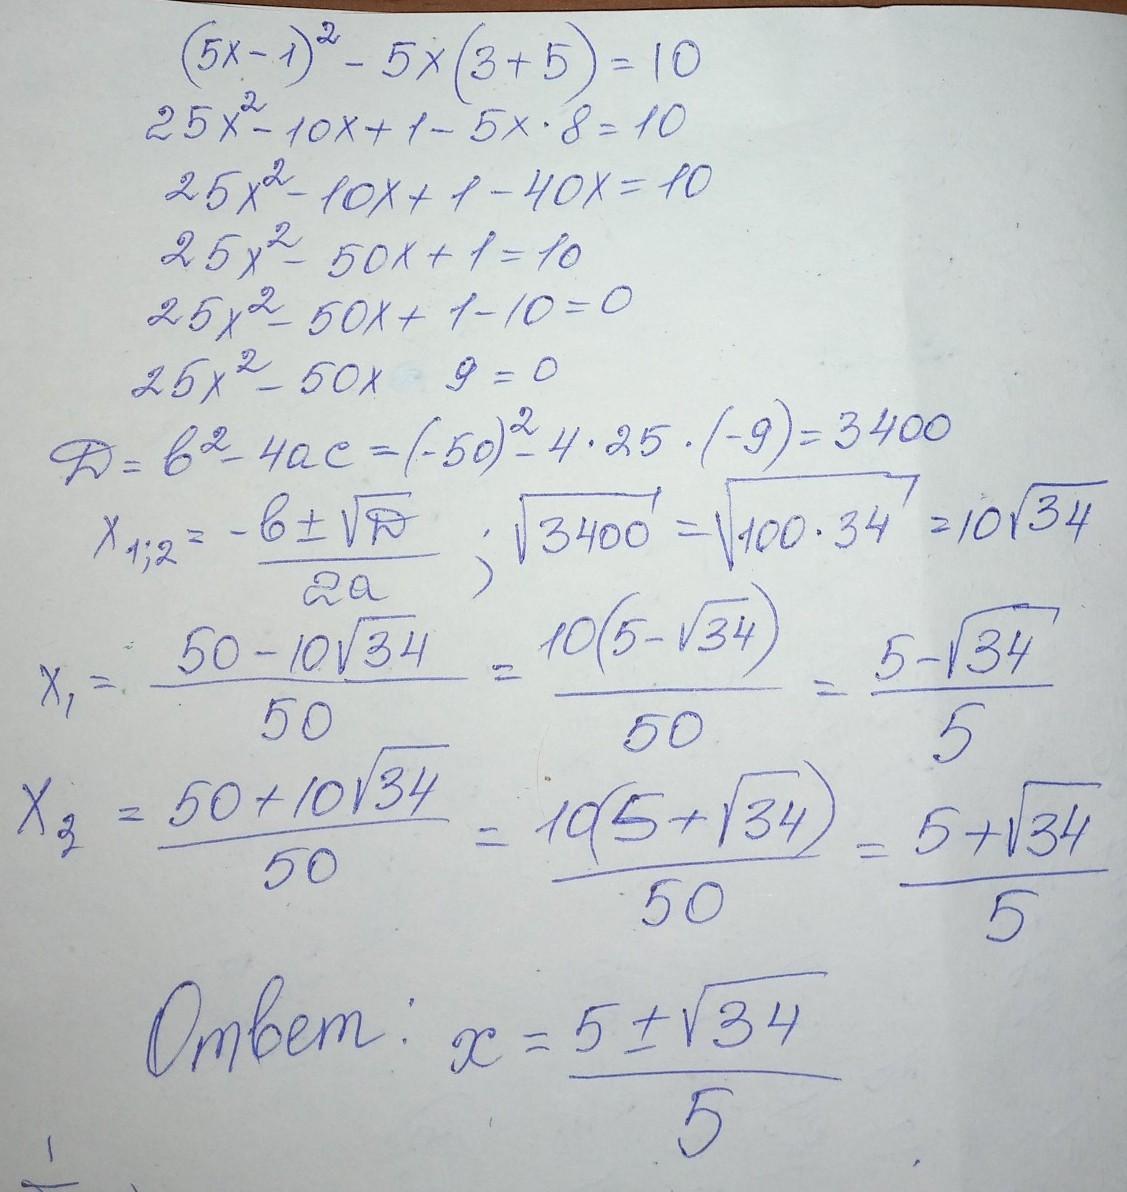 (5x-1)² - 5x(3+5) = 10
25x² - 10x + 1 - 5x · 8 = 10
25x² - 10x + 1 - 40x = 10
25x² - 50x + 1 = 10
25x² - 50x + 1 - 10 = 0
25x² - 50x 9 = 0
D = b² - 4ac = (-50)² - 4 · 25 · (-9) = 3400
x₁;₂ = (-b ± √D)/2a ; √3400 = √100 · 34 = 10√34
x₁ = (50 - 10√34)/50 = 10(5 - √34)/50 = (5 - √34)/5
x₂ = (50 + 10√34)/50 = 10(5 + √34)/50 = (5 + √34)/5
Ответ: x = (5 ± √34)/5
1